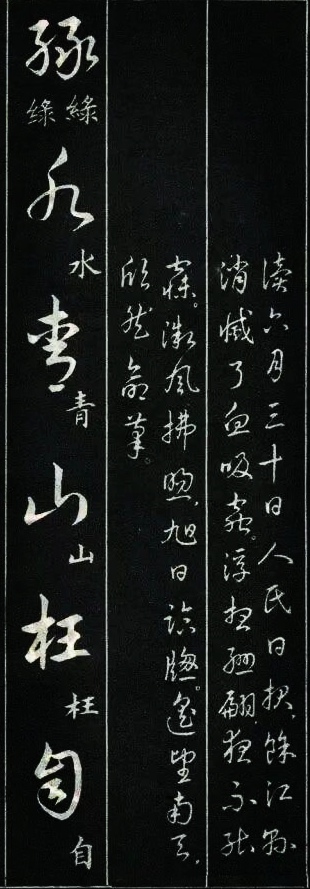 读六月三十日人民日报,馀江县
消灭了血吸虫。浮想联翩,夜不能
寐。微风拂煦,旭日临窗。遥望南天,
欣然命笔。
绿 緑 綠
水 水
青 青
山 山
枉 枉
自 自